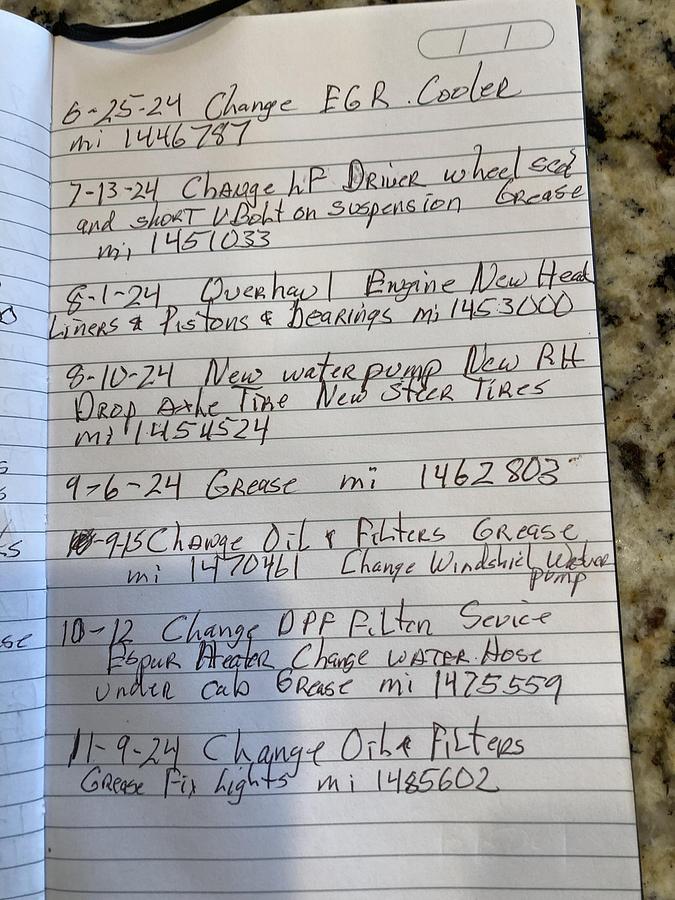 6-25-24 Change EGR. Cooler
mi 1446787
7-13-24 Change LF Driver wheel seal
and short UBolt on suspension Grease
mi, 1451033
8-1-24 Overhaul Engine New Head
Liners & Pistons & Bearings mi 1453000
8-10-24 New water pump New RH
Drop Axle Tire New Steer Tires
mi 1454524
9-6-24 Grease mi 1462803
9-15 Change Oil & Filters Grease
mi 1470461 Change Windshiel
pump
10-12 Change DPF Filter Sevice
Heater Change WATER Hose
under cab Grease mi 1475559
11-9-24 Change Oil & Filters
Grease Fix Lights mi 1485602